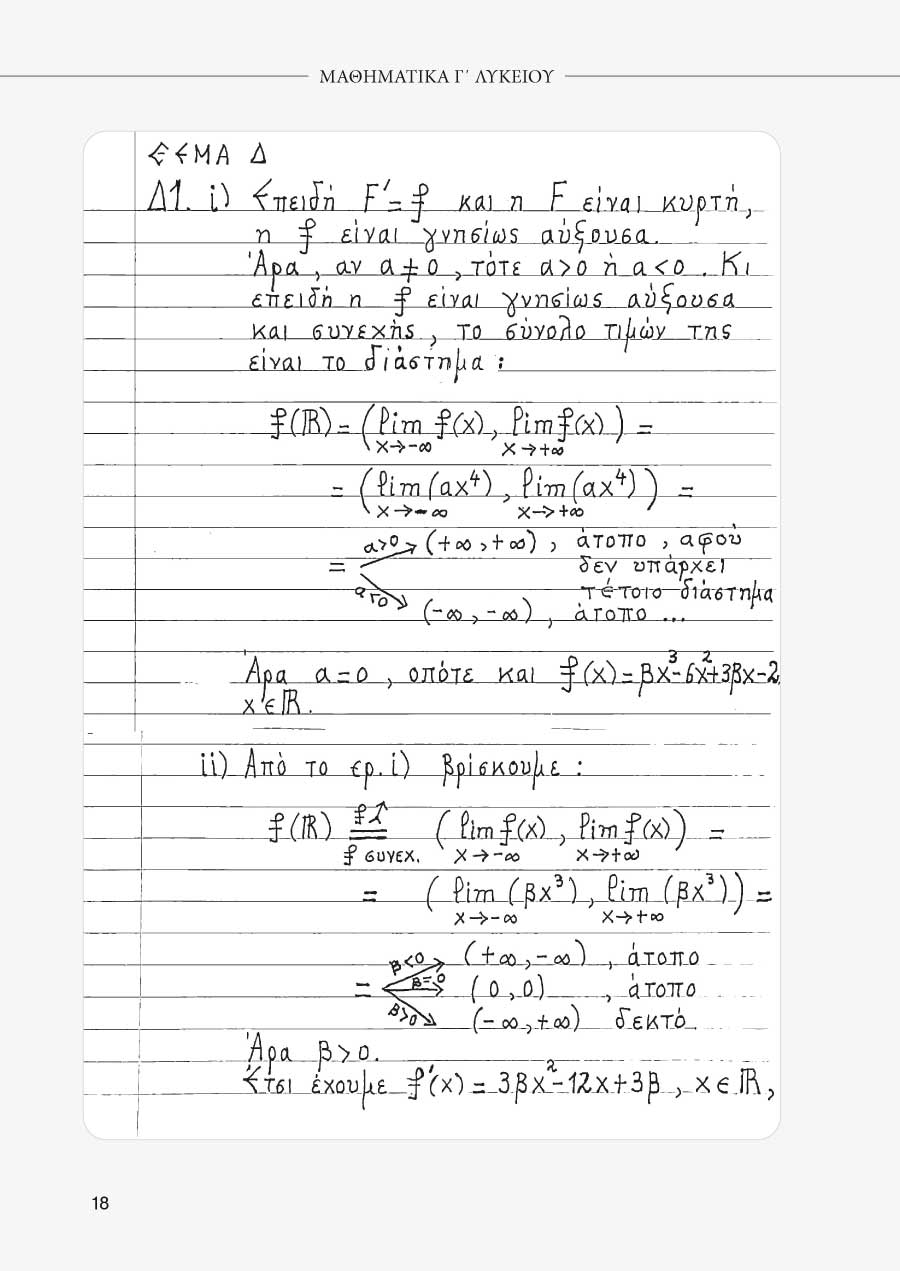 ΜΑΘΗΜΑΤΙΚΑ Γ΄ ΛΥΚΕΙΟΥ
ΘΕΜΑ Δ
Δ1. i) Επειδή F′=f και η F είναι κυρτή,
η f είναι γνησίως αύξουσα.
Άρα, αν α≠0, τότε α>0 ή α<0. Κι
επειδή η f είναι γνησίως αύξουσα
και συνεχής, το σύνολο τιμών της
είναι το διάστημα:
f(ℝ)=(lim f(x), lim f(x))=
x→-∞ x→+∞
=(lim(αx⁴), lim(αx⁴))=
x→-∞ x→+∞
α>0 (+∞,+∞), άτοπο, αφού
= δεν υπάρχει
α<0 τέτοιο διάστημα
(-∞,-∞), άτοπο ...
Άρα α=0, οπότε και f(x)=βx³-6x²+3βx-2,
x∈ℝ.
ii) Από το ερ. i) βρίσκουμε:
f(ℝ) = (lim f(x), lim f(x))=
f↗
f συνεχ. x→-∞ x→+∞
= (lim(βx³), lim(βx³))=
x→-∞ x→+∞
β<0 (+∞,-∞), άτοπο
= β=0 (0,0), άτοπο
β>0 (-∞,+∞) δεκτό.
Άρα β>0.
Έτσι έχουμε f′(x)=3βx²-12x+3β, x∈ℝ,
18